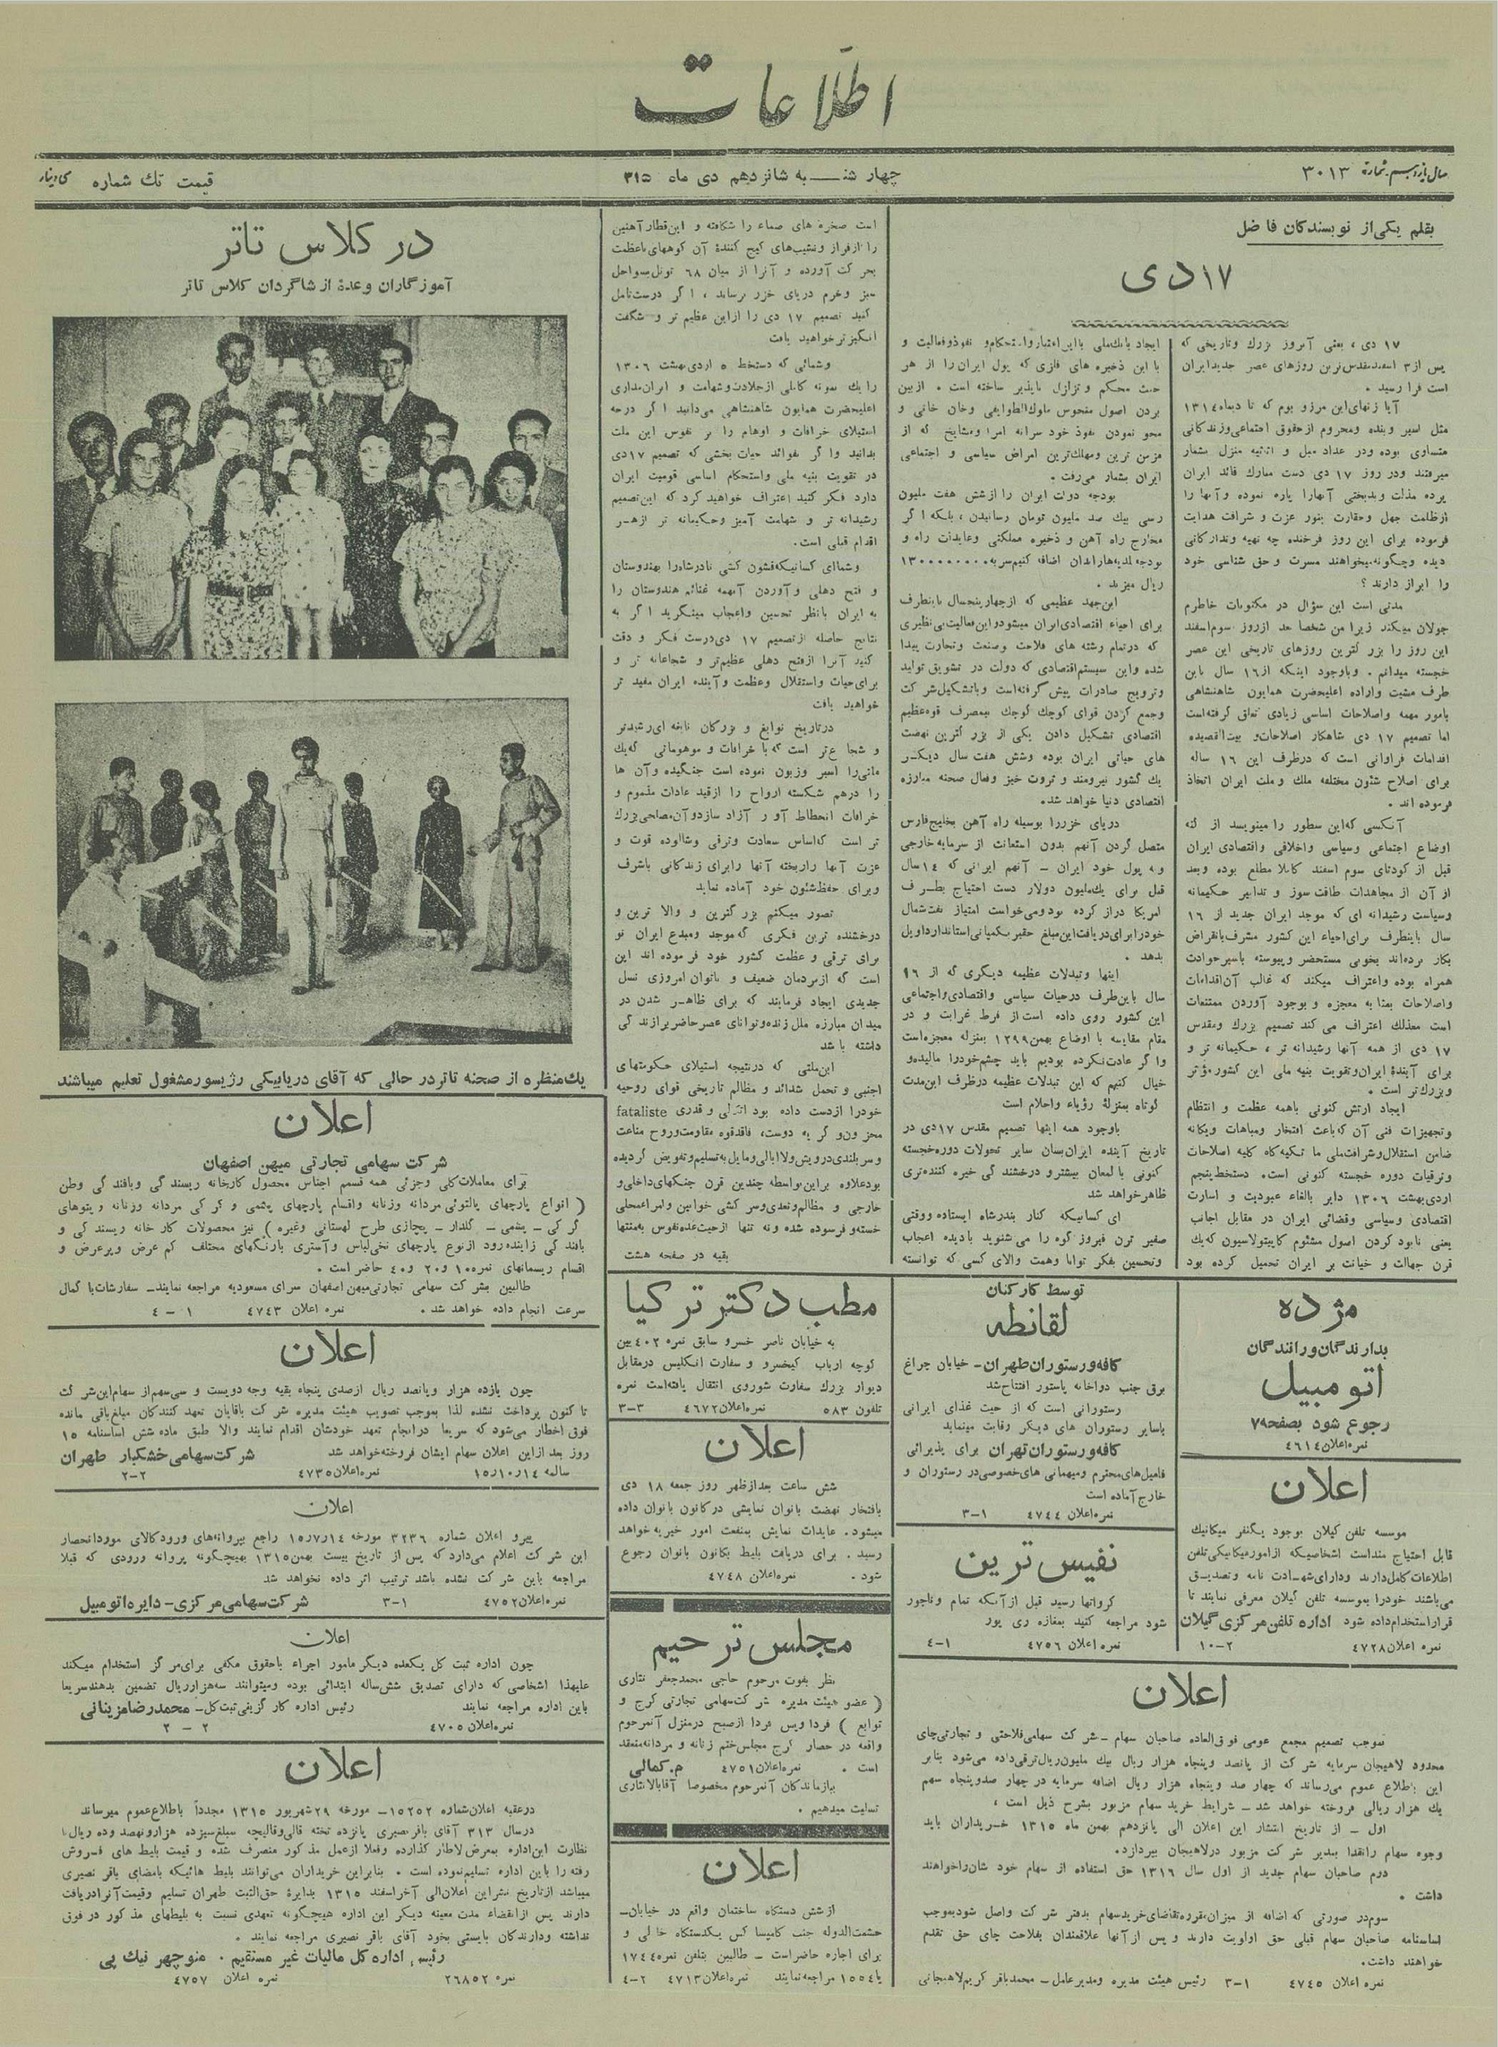 اطلاعات
سال یازدهم شمارهٔ ۳۰۱۳
چهارشنبه شانزدهم دی ماه ۱۳۱۵
قیمت تك شماره سی دینار
بقلم یکی از نویسندگان فاضل
۱۷ دی
۱۷ دی ، یعنی آنروز بزرك وتاریخی که
پس از ۳ اسفند مقدس‌ترین روزهای عصر جدید ایران
است فرا رسید .
آیا زنهای این مرزو بوم که تا دیماه ۱۳۱۴
مثل اسیر وبنده ومحروم از حقوق اجتماعی وزندگانی
متساوی بوده ودر عداد مبل و اثاثیه منزل بشمار
میرفتند ودر روز ۱۷ دی دست مبارك قائد ایران
پرده مذلت وبدبختی آنهارا پاره نموده وآنها را
ازظلمت جهل وحقارت بنور عزت و شرافت هدایت
فرموده برای این روز فرخنده چه تهیه وتدارکاتی
دیده وچگونه میخواهند مسرت و حق شناسی خود
را ابراز دارند ؟
مدتی است این سؤال در مکنونات خاطرم
جولان میکند زیرا من شخصا بعد ازروز سوم اسفند
این روز را بزرگترین روزهای تاریخی این عصر
خجسته میدانم . وباوجود اینکه از ۱۶ سال باین
طرف مشیت واراده اعلیحضرت همایون شاهنشاهی
بامور مهمه واصلاحات اساسی زیادی تعلق گرفته‌است
اما تصمیم ۱۷ دی شاهکار اصلاحات و بیت‌القصیده
اقدامات فراوانی است که درظرف این ۱۶ ساله
برای اصلاح شئون مختلفه ملك وملت ایران اتخاذ
فرموده اند .
آنکسی که‌این سطور را مینویسد از کنه
اوضاع اجتماعی وسیاسی واخلاقی واقتصادی ایران
قبل از کودتای سوم اسفند کاملا مطلع بوده وبعد
از آن از مجاهدات طاقت سوز و تدابیر حکیمانه
وسیاست رشیدانه ای که موجد ایران جدید از ۱۶
سال باینطرف برای‌احیاء این کشور مشرف بانقراض
بکار برده‌اند بخوبی مستحضر وپیوسته باسیر حوادث
همراه بوده واعتراف میکند که غالب آن‌اقدامات
واصلاحات بمثابه معجزه و بوجود آوردن ممتنعات
است معذلك اعتراف می کند تصمیم بزرك ومقدس
۱۷ دی از همه آنها رشیدانه تر ، حکیمانه تر و
برای آیندهٔ ایران‌وتقویت بنیه ملی این کشور مؤثر
وبزرك‌تر است .
ایجاد ارتش کنونی باهمه عظمت و انتظام
وتجهیزات فنی آن که‌باعث افتخار ومباهات ویگانه
ضامن استقلال‌وشرافت‌ملی ما تکیه‌گاه کلیه اصلاحات
وترقیات دوره خجسته کنونی است. دستخط پنجم
اردی‌بهشت ۱۳۰۶ دایر بالغاء عبودیت و اسارت
اقتصادی وسیاسی وقضائی ایران در مقابل اجانب
یعنی نابود کردن اصول مشئوم کاپیتولاسیون که‌یك
قرن جهالت و خیانت بر ایران تحمیل کرده بود
ایجاد بانك‌ملی باین‌اعتباروا‌ستحکام‌و نفوذوفعالیت و
با این ذخیره های فلزی که پول ایران را از هر
حیث محکم و تزلزل ناپذیر ساخته است . ازبین
بردن اصول منحوس ملوك‌الطوایفی وخان خانی و
محو نمودن نفوذ خود سرانه امرا ومشایخ که از
مزمن ترین ومهلك‌ترین امراض سیاسی و اجتماعی
ایران بشمار می‌رفت .
بودجه دولت ایران را ازشش هفت ملیون
رسمی بیك صد ملیون تومان رسانیدن ، بلکه اگر
مخارج راه آهن و ذخیره مملکتی وعایدات راه و
بودجه بلدیه‌هارابدان اضافه کنیم‌سربه ۱۳۰۰۰۰۰۰۰۰
ریال میزند .
این‌جهد عظیمی که ازچهارپنجسال باینطرف
برای احیاء اقتصادی‌ایران میشودواین‌فعالیت‌بی‌نظیری
که درتمام رشته های فلاحت وصنعت وتجارت پیدا
شده واین سیستم‌اقتصادی که دولت در تشویق تولید
وترویج صادرات پیش گرفته‌است وباتشکیل‌شرکت
وجمع کردن قوای کوچك کوچك بمصرف قوه‌عظیم
اقتصادی تشکیل دادن یکی از بزرگترین نهضت
های حیاتی ایران بوده وشش هفت سال دیگر
یك کشور نیرومند و ثروت خیز وفعال صحنه مبارزه
اقتصادی دنیا خواهد شد.
دریای خزررا بوسیله راه آهن بخلیج‌فارس
متصل کردن آنهم بدون استعانت از سرمایه خارجی
و به پول خود ایران – آنهم ایرانی که ۱۴ سال
قبل برای یك‌ملیون دولار دست احتیاج بطرف
امریکا دراز کرده بودومی‌خواست امتیاز نفت‌شمال
خودرابرای‌دریافت‌این‌مبلغ حقیربکمپانی‌استانداردایل
بدهد .
اینها وتبدلات عظیمه دیگری که از ۱۶
سال باین‌طرف درحیات سیاسی واقتصادی‌واجتماعی
این کشور روی داده است‌از فرط غرابت و در
مقام مقایسه با اوضاع بهمن۱۲۹۹ بمنزله معجزه‌است
واگر عادت‌نکرده بودیم باید چشم‌خودرا مالیده‌و
خیال کنیم که این تبدلات عظیمه درظرف این‌مدت
کوتاه بمنزلهٔ رؤیاء واحلام است
باوجود همه اینها تصمیم مقدس ۱۷دی در
تاریخ آینده ایران‌بسان سایر تحولات دوره‌خجسته
کنونی با لمعان بیشتر و درخشندگی خیره کننده‌تری
ظاهرخواهد شد
ای کسانیکه کنار بندرشاه ایستاده ووقتی
صفیر ترن فیروز کوه را می شنوید بادیده اعجاب
وتحسین بفکر توانا وهمت والای کسی که توانسته
است صخره های صماء را شکافته و این‌قطار آهنین
را ازفراز ونشیب‌های گیج کنندهٔ آن کوههای‌باعظمت
بحرکت آورده و آنرا از میان ۶۸ تونل‌بسواحل
سبز وخرم دریای خزر برساند ، اگر درست‌تامل
کنید تصمیم ۱۷ دی را ازاین عظیم تر و شگفت
انگیزتر خواهید یافت
وشمائی که دستخط ۵ اردی‌بهشت ۱۳۰۶
را یك نمونه کاملی ازجلادت‌وشهامت و ایران‌مداری
اعلیحضرت همایون شاهنشاهی می‌دانید اگر درجه
استیلای خرافات و اوهام را بر نفوس این ملت
بدانید واگر بفوائد حیات بخشی که تصمیم ۱۷دی
در تقویت بنیه ملی واستحکام اساسی قومیت ایران
دارد فکر کنید اعتراف خواهید کرد که این‌تصمیم
رشیدانه تر و شهامت آمیز وحکیمانه تر از هر
اقدام قبلی است .
وشماای کسانیکه‌قشون کشی نادرشاه‌را بهندوستان
و فتح دهلی وآوردن آنهمه غنائم هندوستان را
به ایران بانظر تحسین واعجاب مینگرید اگر به
نتایج حاصله ازتصمیم ۱۷ دی‌درست فکر و دقت
کنید آنرا ازفتح دهلی عظیم‌تر و شجاعانه تر و
برای‌حیات واستقلال وعظمت وآینده ایران مفید تر
خواهید یافت
درتاریخ نوابغ و بزرگان نابغه ای‌رشیدتر
و شجاع‌تر است که‌با خرافات و موهوماتی که‌یك
ملتی‌را اسیر وزبون نموده است جنگیده وآن ها
را درهم شکسته ارواح را ازقید عادات مذموم و
خرافات انحطاط آور آزاد سازدوآن‌مصلحی‌بزرك
تر است که‌اساس سعادت وترقی وشالوده قوت و
عزت آنها راریخته آنها رابرای زندگانی باشرف
وبرای حفظ‌شئون خود آماده نماید
تصور میکنم بزرگترین و والا ترین و
درخشنده ترین فکری که‌موجد ومبدع ایران نو
برای ترقی و عظمت کشور خود فرموده اند این
است که ازمردمان ضعیف و ناتوان امروزی نسل
جدیدی ایجاد فرمایند که برای ظاهر شدن در
میدان مبارزه ملل زنده‌وتوانای عصرحاضربرازندگی
داشته باشد
این‌ملتی که درنتیجه استیلای حکومتهای
اجنبی و تحمل شدائد و مظالم تاریخی قوای روحیه
خودرا ازدست داده بود اتکالی و قدری fataliste
محزون‌و گریه دوست، فاقدقوه مقاومت‌وروح مناعت
وسربلندی‌درویش‌ولاابالی‌ومایل‌به‌تسلیم‌وتفویض گردیده
بودعلاوه براین‌بواسطه چندین قرن جنگهای‌داخلی‌و
خارجی و مظالم‌وتعدی‌وسرکشی خوانین وامراءمحلی
خسته‌وفرسوده شده ونه تنها ازحیث‌عده‌نفوس به‌منتها
بقیه در صفحه هشت
در کلاس تاتر
آموزگاران وعدهٔ از شاگردان کلاس تاتر
یك منظره از صحنه تاتردر حالی که آقای دریابیگی رژیسورمشغول تعلیم میباشند
اعلان
شرکت سهامی تجارتی میهن اصفهان
برای معاملات‌کلی وجزئی همه قسم اجناس محصول کارخانه ریسندگی وبافندگی وطن
( انواع پارچهای پالتوئی مردانه وزنانه واقسام پارچهای پشمی و کرکی مردانه وزنانه وپتوهای
کرکی – پشمی – گلدار – پیچازی طرح لهستانی وغیره ) نیز محصولات کارخانه ریسندگی و
بافندگی زاینده‌رود ازنوع پارچهای نخی‌لباس وآستری بارنگهای مختلف کم عرض وپرعرض و
اقسام ریسمانهای نمره۱۰ و۲۰ و ۴۰ حاضر است .
طالبین بشرکت سهامی تجارتی‌میهن‌اصفهان سرای مسعودیه مراجعه نمایند – سفارشات‌با کمال
سرعت انجام داده خواهد شد . نمره اعلان ۴۷۴۳ ۱ - ۴
اعلان
چون یازده هزار وپانصد ریال ازصدی پنجاه بقیه وجه دویست و سی‌سهم‌از سهام‌این‌شرکت
تا کنون پرداخت نشده لذا بموجب تصویب هیئت مدیره شرکت باقایان تعهد کنندگان مبلغ‌باقی مانده
فوق اخطار می‌شود که سریعا درانجام تعهد خودشان اقدام نمایند والا طبق ماده شش اساسنامه ۱۵
روز بعدازاین اعلان سهام ایشان فروخته‌خواهد شد شرکت سهامی خشکبار طهران
سالمه ۱۵/۱۰/۱۴ نمره‌اعلان۴۷۳۵ ۲-۲
اعلان
پیرو اعلان شماره ۳۲۳۶ مورخه ۱۵/۷/۱۴ راجع بپروانه‌های ورودکالای موردانحصار
این شرکت اعلام می‌دارد که پس از تاریخ بیست بهمن۱۳۱۵ بهیچگونه پروانه ورودی که قبلا
مراجعه باین شرکت نشده باشد ترتیب اثر داده نخواهد شد
نمره‌اعلان ۴۷۵۲ ۳-۱ شرکت سهامی مرکزی – دایره اتومبیل
اعلان
چون اداره ثبت کل یکعده دیگر مامور اجراء باحقوق مکفی برای‌مرکز استخدام میکند
علیهذا اشخاصی که دارای تصدیق شش‌ساله ابتدائی بوده ومیتوانند سه‌هزارریال تضمین بدهند‌سریعا
باین اداره مراجعه نمایند رئیس اداره کارگزینی ثبت کل – محمدرضا مزینانی
نمره‌اعلان ۴۷۰۵ ۲ - ۲
اعلان
درعقیه اعلان‌شماره ۱۵۲۵۲– مورخه ۲۹شهریور ۱۳۱۵ مجدداً باطلاع‌عموم میرساند
درسال ۳۱۳ آقای باقرنصیری پانزده تخته قالی‌وقالیچه بمبلغ‌سیزده هزارونهصد وده ریال‌با
نظارت این‌اداره بمعرض لاطار گذارده وفعلا ازعمل مذکور منصرف شده و قیمت بلیط های فروش
رفته را باین اداره تسلیم‌نموده است . بنابراین خریداران می‌توانند بلیط هائیکه بامضای باقر نصیری
میباشد ازتاریخ نشراین اعلان‌الی آخراسفند ۱۳۱۵ بدایرهٔ حق‌الثبت طهران تسلیم وقیمت‌آنرادریافت
دارند پس ازانقضاء مدت معینه دیگر این اداره هیچگونه تعهدی نسبت به بلیطهای مذکور در فوق
نداشته ودارندگان بایستی بخود آقای باقر نصیری مراجعه نمایند .
رئیس اداره کل مالیات غیر مستقیم . منوچهر نیك پی
نمره ۲۶۸۵۲ نمره اعلان ۴۷۵۷
مطب دکتر ترکیا
به خیابان ناصر خسرو سابق نمره ۴۰۲ بین
کوچه ارباب کیخسرو و سفارت انگلیس درمقابل
دیوار بزرك سفارت شوروی انتقال یافته‌است نمره
تلفون ۵۸۳ نمره‌اعلان ۴۶۷۲ ۳-۳
اعلان
شش ساعت بعدازظهر روز جمعه ۱۸ دی
بافتخار نهضت بانوان نمایشی درکانون بانوان داده
میشود. عایدات نمایش بمنفعت امور خیریه‌خواهد
رسید . برای دریافت بلیط بکانون بانوان رجوع
شود . نمره‌اعلان ۴۷۴۸
مجلس ترحیم
نظر بفوت مرحوم حاجی محمدجعفر نثاری
( عضو هیئت مدیره شرکت‌سهامی تجارتی کرج و
توابع ) فردا وپس فردا ازصبح درمنزل آنمرحوم
واقعه در حصار کرج مجلس‌ختم زنانه و مردانه‌منعقد
است . نمره‌اعلان ۴۷۵۱ م. کمالی
ببازماندگان آنمرحوم مخصوصا آقابالانثاری
تسلیت میدهیم .
اعلان
ازشش دستگاه ساختمان واقع در خیابان–
حشمت‌الدوله جنب کامپساکس یکدستگاه خالی و
برای اجاره حاضراست – طالبین بتلفن نمره ۱۷۴۴
یا ۱۵۵۴ مراجعه نمایند نمره‌اعلان ۴۷۱۳ ۴-۲
توسط کارکنان
لقانطه
کافه ورستوران طهران – خیابان چراغ
برق جنب دواخانه پاستور افتتاح‌شد
رستورانی است که از حیث غذای ایرانی
باسایر رستوران های دیگر رقابت مینماید
کافه ورستوران تهران برای پذیرائی
فامیل‌های‌محترم ومیهمانی های‌خصوصی‌در رستوران و
خارج‌آماده است
نمره‌اعلان ۴۷۴۴ ۳-۱
نفیس ترین
کرواتها رسید قبل ازآنکه تمام وناجور
شود مراجعه کنید بمغازه ری پور
نمره اعلان ۴۷۵۶ ۴-۱
مژده
بدارندگان ورانندگان
اتومبیل
رجوع شود بصفحه ۷
نمره‌اعلان ۴۶۱۴
اعلان
موسسه تلفن گیلان بوجود یکنفر میکانیك
قابل احتیاج منداست اشخاصیکه ازامورمیکانیکی‌تلفن
اطلاعات‌کامل‌دارند ودارای‌شهادت نامه وتصدیق
می‌باشند خودرا بموسسه تلفن گیلان معرفی نمایند تا
قراراستخدام‌داده شود اداره تلفن مرکزی گیلان
نمره اعلان ۴۷۲۸ ۱۰-۲
اعلان
بموجب تصمیم مجمع عمومی فوق‌العاده صاحبان سهام – شرکت سهامی‌فلاحتی و تجارتی‌چای
محدود لاهیجان سرمایه شرکت از پانصد وپنجاه هزار ریال بیك ملیون‌ریال‌ترقی‌داده می‌شود بنابر
این باطلاع عموم می‌رساند که چهار صد وپنجاه هزار ریال اضافه سرمایه در چهار صدوپنجاه سهم
یك هزار ریالی فروخته خواهد شد – شرایط خرید سهام مزبور بشرح ذیل است ،
اول – از تاریخ انتشار این اعلان الی پانزدهم بهمن ماه ۱۳۱۵ خریداران باید
وجوه سهام رانقدا بمدیر شرکت مزبور درلاهیجان بپردازد.
دوم صاحبان سهام جدید از اول سال ۱۳۱۶ حق استفاده از سهام خود شان‌راخواهند
داشت .
سوم‌در صورتی که اضافه از میزان‌مقرره‌تقاضای‌خریدسهام بدفتر شرکت واصل شودبموجب
اساسنامه صاحبان سهام قبلی حق اولویت دارند و پس ازآنها علاقمندان بفلاحت چای حق تقدم
خواهند داشت.
نمره اعلان ۴۷۴۵ ۳-۱ رئیس هیئت مدیره ومدیرعامل – محمدباقر کریم‌لاهیجانی